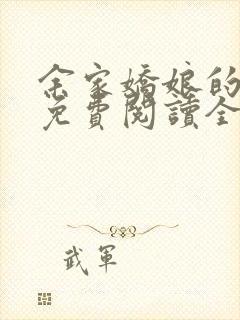 余家嬌娘的
免費閱讀全
武軍